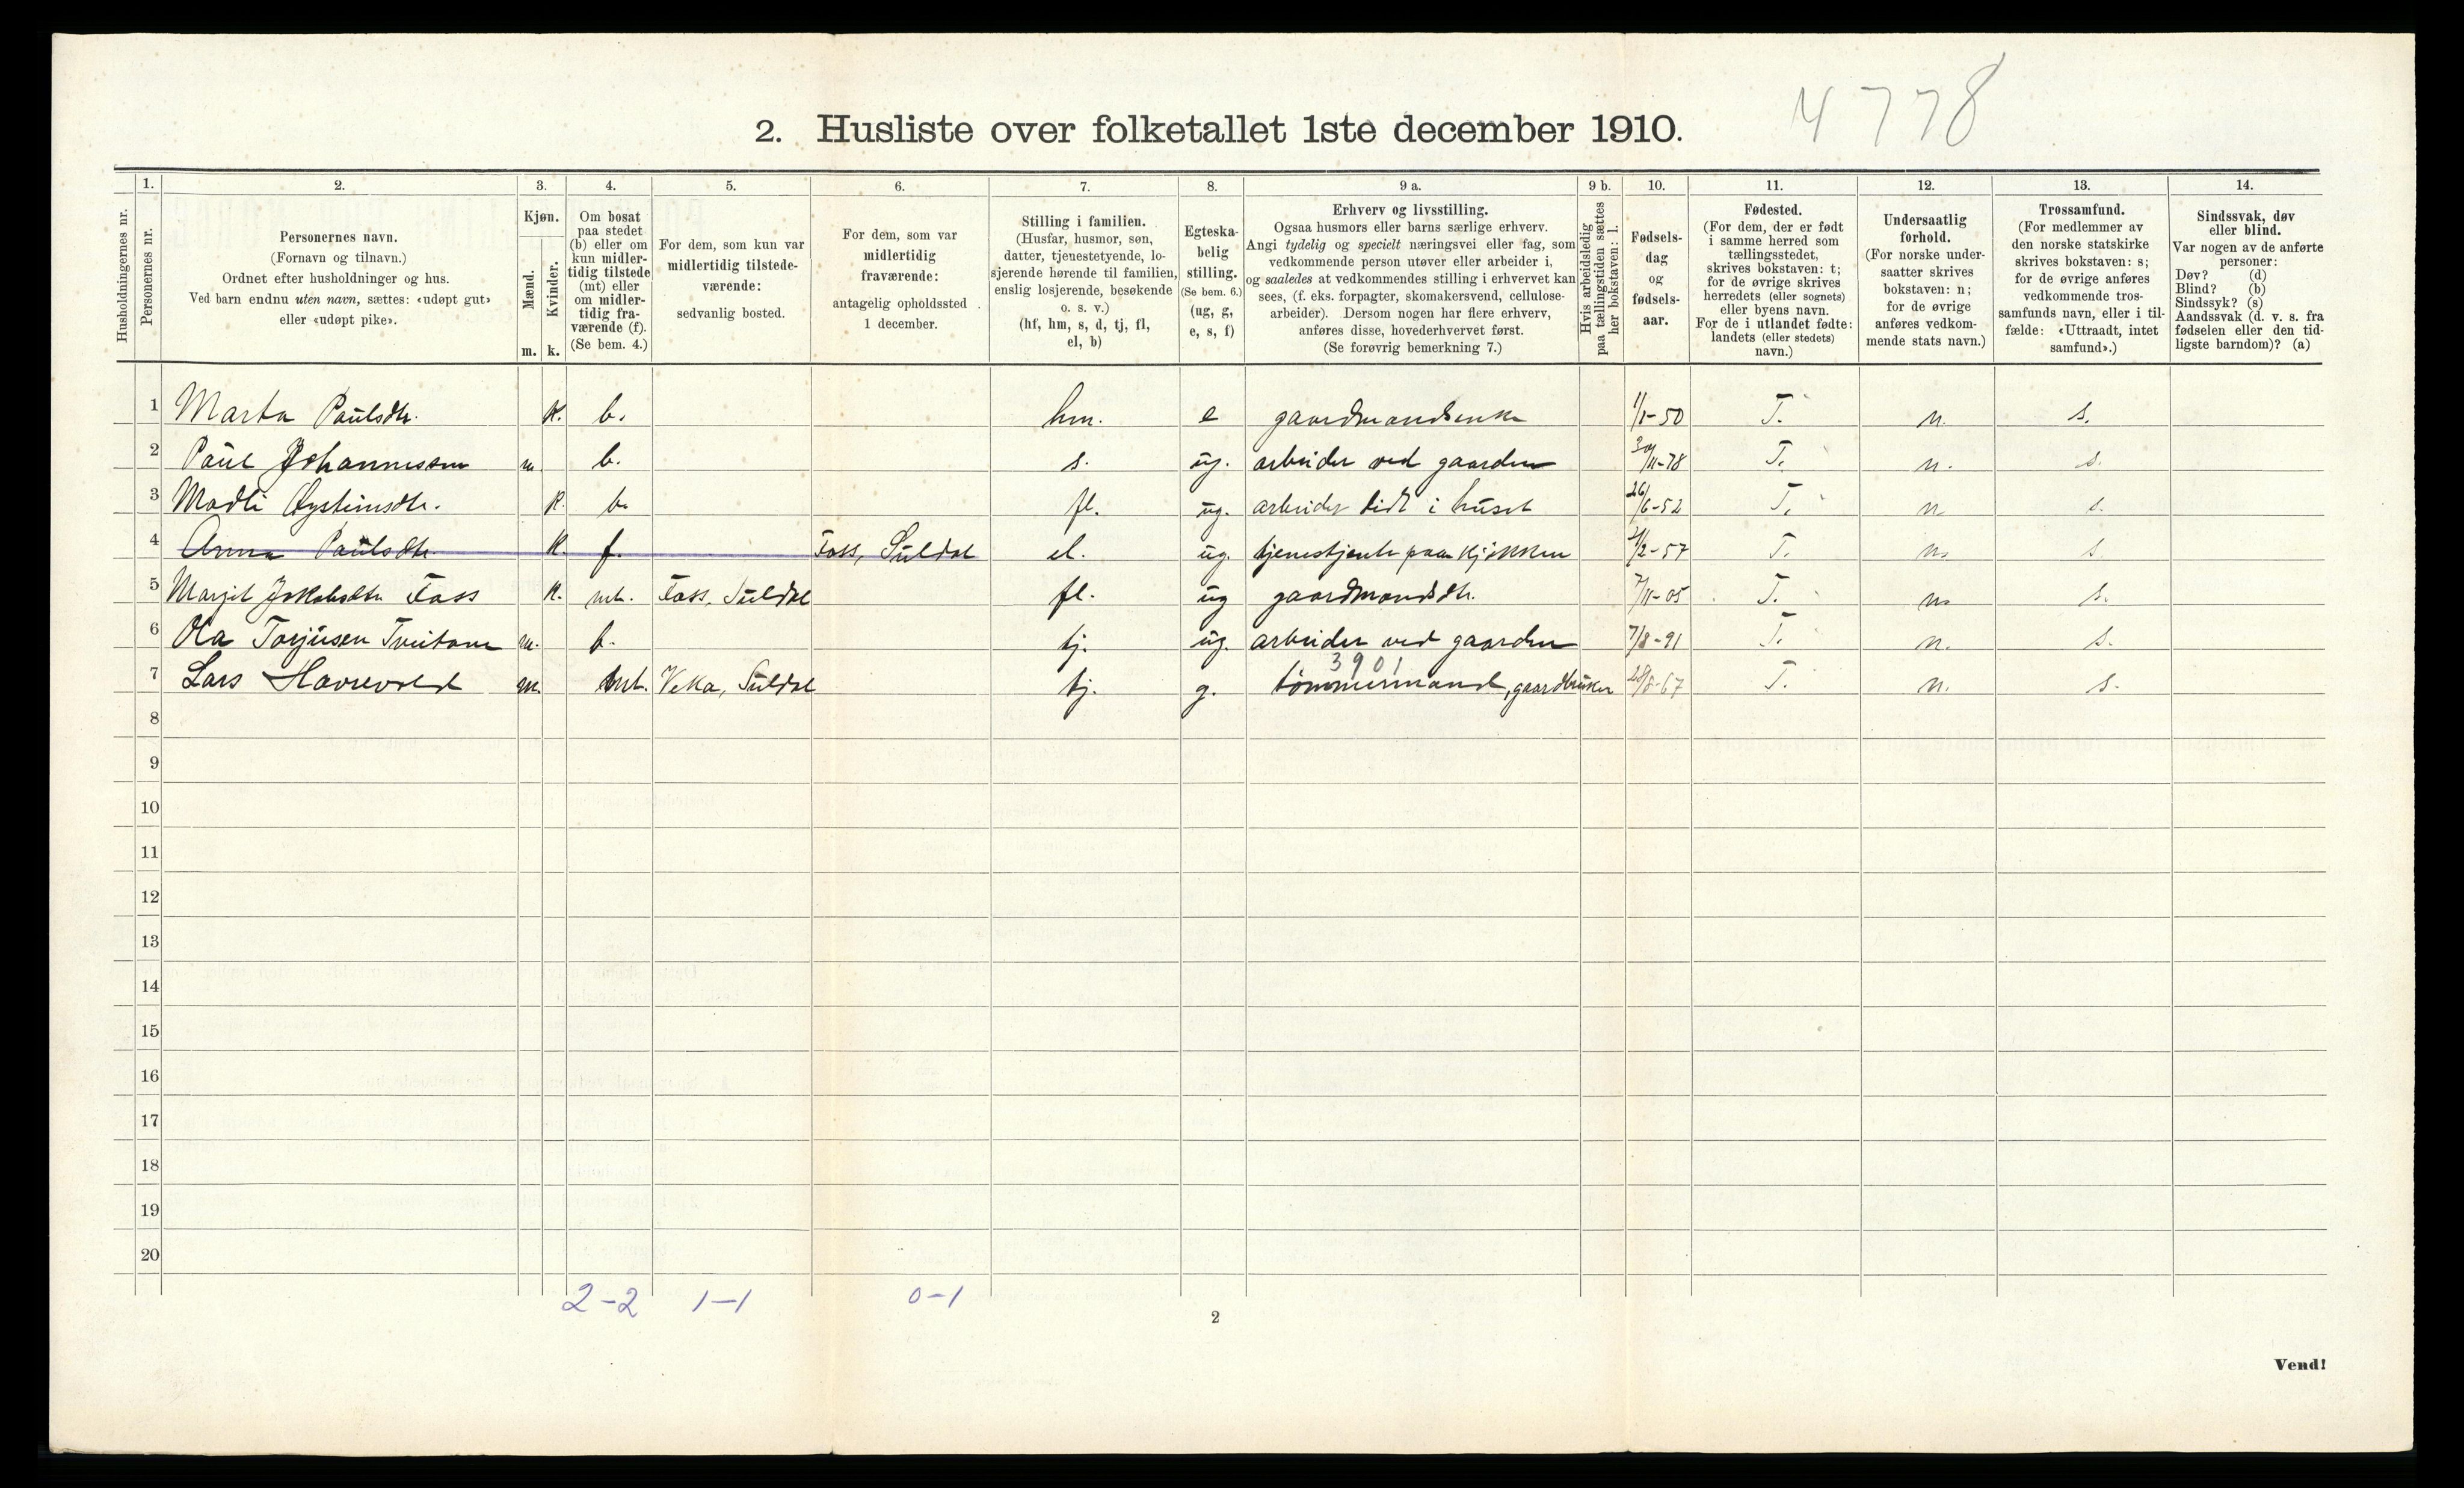 4778
2. Husliste over folketallet 1ste december 1910.
Husholdningernes nr.
1. Personernes nr.
2. Personernes navn. (Fornavn og tilnavn.) Ordnet efter husholdninger og hus. Ved barn endnu uten navn, sættes: «udøpt gut» eller «udøpt pike».
3. Kjøn. Mænd. m. Kvinder. k.
4. Om bosat paa stedet (b) eller om kun midlertidig tilstede (mt) eller om midlertidig fraværende (f). (Se bem. 4.)
5. For dem, som kun var midlertidig tilstedeværende: sedvanlig bosted.
6. For dem, som var midlertidig fraværende: antagelig opholdssted 1 december.
7. Stilling i familien. (Husfar, husmor, søn, datter, tjenestetyende, losjerende hørende til familien, enslig losjerende, besøkende o. s. v.) (hf, hm, s, d, tj, fl, el, b)
8. Egteskabelig stilling. (Se bem. 6.) (ug, g, e, s, f)
9 a. Erhverv og livsstilling. Ogsaa husmors eller barns særlige erhverv. Angi tydelig og specielt næringsvei eller fag, som vedkommende person utøver eller arbeider i, og saaledes at vedkommendes stilling i erhvervet kan sees, (f. eks. forpagter, skomakersvend, cellulosearbeider). Dersom nogen har flere erhverv, anføres disse, hovederhvervet først. (Se forøvrig bemerkning 7.)
9 b. Hvis arbeidsledig paa tællingstiden sættes her bokstaven: l.
10. Fødselsdag og fødselsaar.
11. Fødested. (For dem, der er født i samme herred som tællingsstedet, skrives bokstaven: t; for de øvrige skrives herredets (eller sognets) eller byens navn. For de i utlandet fødte: landets (eller stedets) navn.)
12. Undersaatlig forhold. (For norske undersaatter skrives bokstaven: n; for de øvrige anføres vedkommende stats navn.)
13. Trossamfund. (For medlemmer av den norske statskirke skrives bokstaven: s; for de øvrige anføres vedkommende trossamfunds navn, eller i tilfælde: «Uttraadt, intet samfund».)
14. Sindssvak, døv eller blind. Var nogen av de anførte personer: Døv? (d) Blind? (b) Sindssyk? (s) Aandssvak (d. v. s. fra fødselen eller den tidligste barndom)? (a)
1 Marta Paulsdtr. k. b. hm. e gaardmandsenke 1/1-50 T. n. s.
2 Paul Johannessen m. b. s. ug. arbeider ved gaarden 30/11-78 T. n. s.
3 Madli Øysteinsdtr. k. b. fl. ug. arbeider lidt i huset 26/6-52 T. n s.
4 Anna Paulsdtr. k. f. Foss, Suldal el. ug. tjenestjente paa kjøkken /2-57 T. n. s.
5 Margit Jakobsdtr Foss k. mt. Foss, Suldal fl. ug gaardmandsdtr. 7/11-05 T. n. s.
6 Ola Torjusen Tveitane m. b. tj. ug. arbeider ved gaarden 7/8-91 T. n. s.
3901
7 Lars Havrevold m. mt. Veka, Suldal tj. g. tømmermand, gaardbruker 28/8-67 T. n. s.
8
9
10
11
12
13
14
15
16
17
18
19
20
2-2 1-1 0-1
2
Vend!